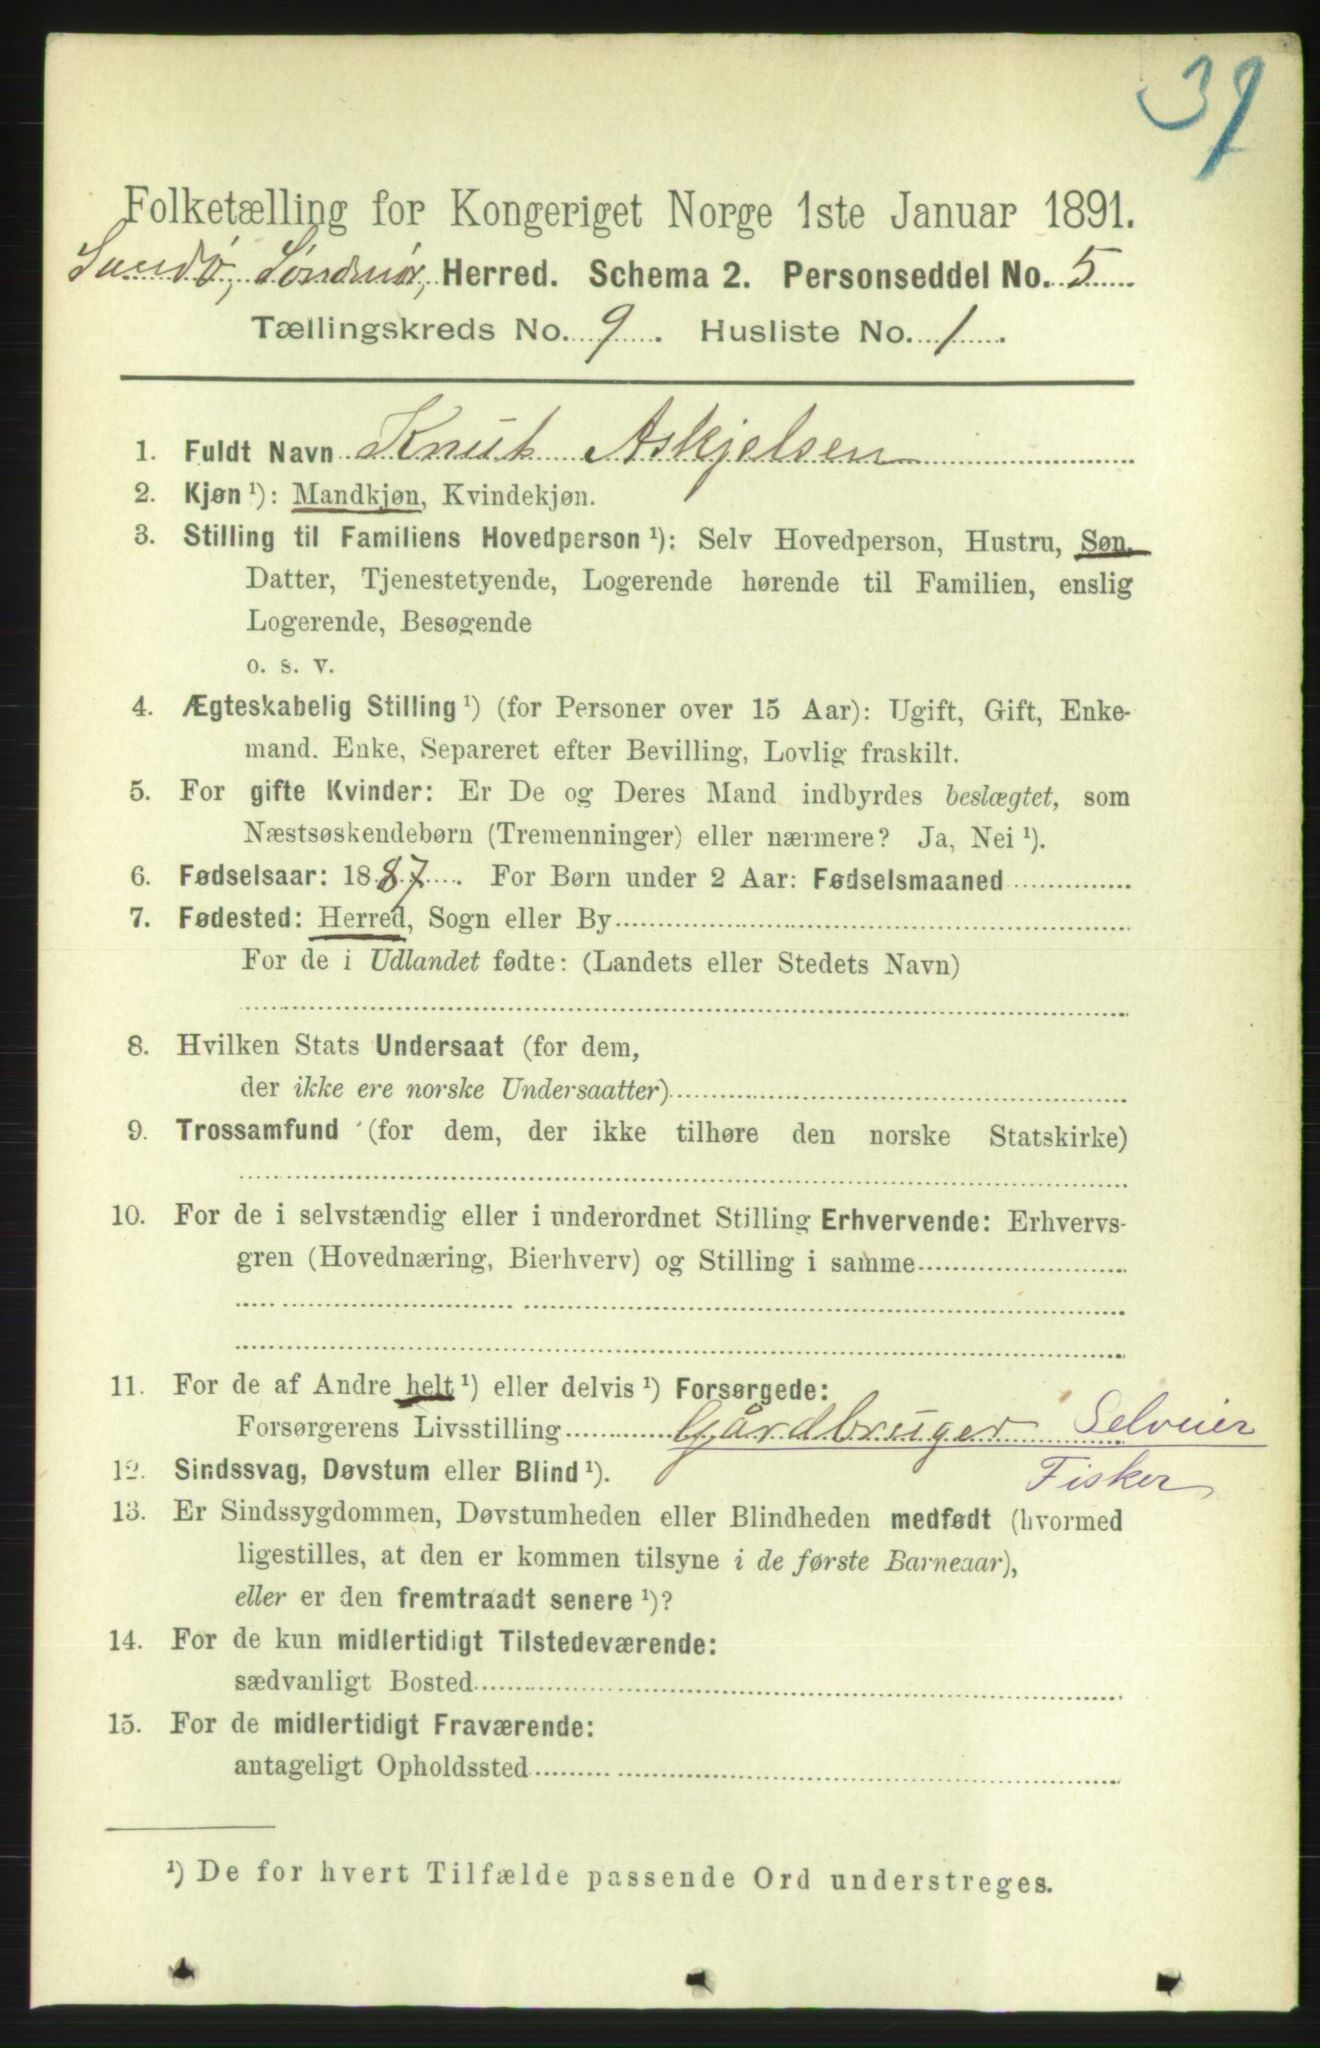 37
Folketælling for Kongeriget Norge 1ste Januar 1891.
Sandø, Søndmør, Herred. Schema 2. Personseddel No. 5
Tællingskreds No. 9. Husliste No. 1.
1. Fuldt Navn Knut Askjelsen
2. Kjøn ¹): Mandkjøn, Kvindekjøn.
3. Stilling til Familiens Hovedperson ¹): Selv Hovedperson, Hustru, Søn,
Datter, Tjenestetyende, Logerende hørende til Familien, enslig
Logerende, Besøgende
o. s. v.
4. Ægteskabelig Stilling ¹) (for Personer over 15 Aar): Ugift, Gift, Enke-
mand. Enke, Separeret efter Bevilling, Lovlig fraskilt.
5. For gifte Kvinder: Er De og Deres Mand indbyrdes beslægtet, som
Næstsøskendebørn (Tremenninger) eller nærmere? Ja, Nei ¹).
6. Fødselsaar: 1887. For Børn under 2 Aar: Fødselsmaaned
7. Fødested: Herred, Sogn eller By
For de i Udlandet fødte: (Landets eller Stedets Navn)
8. Hvilken Stats Undersaat (for dem,
der ikke ere norske Undersaatter)
9. Trossamfund (for dem, der ikke tilhøre den norske Statskirke)
10. For de i selvstændig eller i underordnet Stilling Erhvervende: Erhvervs-
gren (Hovednæring, Bierhverv) og Stilling i samme
11. For de af Andre helt ¹) eller delvis ¹) Forsørgede:
Forsørgerens Livsstilling Gårdbruger Selveier
12. Sindssvag, Døvstum eller Blind ¹). Fisker
13. Er Sindssygdommen, Døvstumheden eller Blindheden medfødt (hvormed
ligestilles, at den er kommen tilsyne i de første Barneaar),
eller er den fremtraadt senere ¹)?
14. For de kun midlertidigt Tilstedeværende:
sædvanligt Bosted
15. For de midlertidigt Fraværende:
antageligt Opholdssted
¹) De for hvert Tilfælde passende Ord understreges.